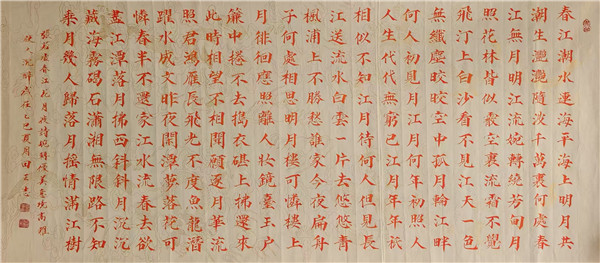 春江潮水連海平海上明月共
潮生灩灩隨波千萬裏何處春
江無月明江流宛轉繞芳甸月
照花林皆似霰空裏流霜不覺
飛汀上白沙看不見江天一色
無纖塵皎皎空中孤月輪江畔
何人初見月江月何年初照人
人生代代無窮已江月年年祇
相似不知江月待何人但見長
江送流水白雲一片去悠悠青
楓浦上不勝愁誰家今夜扁舟
子何處相思明月樓可憐樓上
月徘徊應照離人妝鏡臺玉戶
簾中捲不去搗衣砧上拂還來
此時相望不相聞願逐月華流
照君鴻雁長飛光不度魚龍潛
躍水成文昨夜閑潭夢落花可
憐春半不還家江水流春去欲
盡江潭落月西斜斜月沉沉
藏海霧碣石瀟湘無限路不知
乘月幾人歸落月搖情滿江樹
張若虛春江花月夜詩婉轉優美意境高雅
使人沉醉歲在乙巳夏月